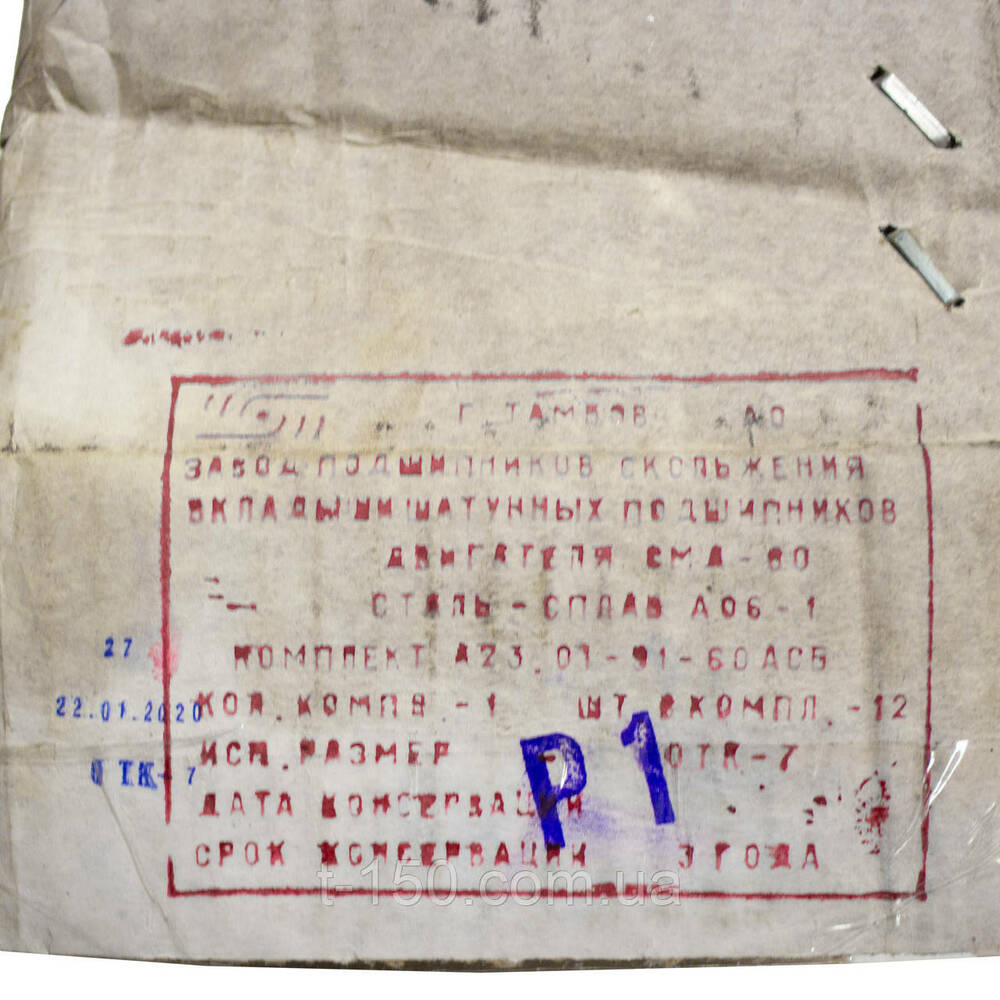 Г. ТАМБОВ АО
ЗАВОД ПОДШИПНИКОВ СКОЛЬЖЕНИЯ
ВКЛАДЫШИ ШАТУННЫХ ПОДШИПНИКОВ
ДВИГАТЕЛЯ СМД-60
СТАЛЬ-СПЛАВ АО6-1
27
КОМПЛЕКТ А23.01-91-60АСБ
22.01.2020
КОЛ. КОМПЛ. -1 ШТ. ВКОМПЛ. -12
ИСП. РАЗМЕР - ОТК-7
Р1
ОТК-7
ДАТА КОНСЕРВАЦИИ
СРОК КОНСЕРВАЦИИ 3 ГОДА
t-150.com.ua